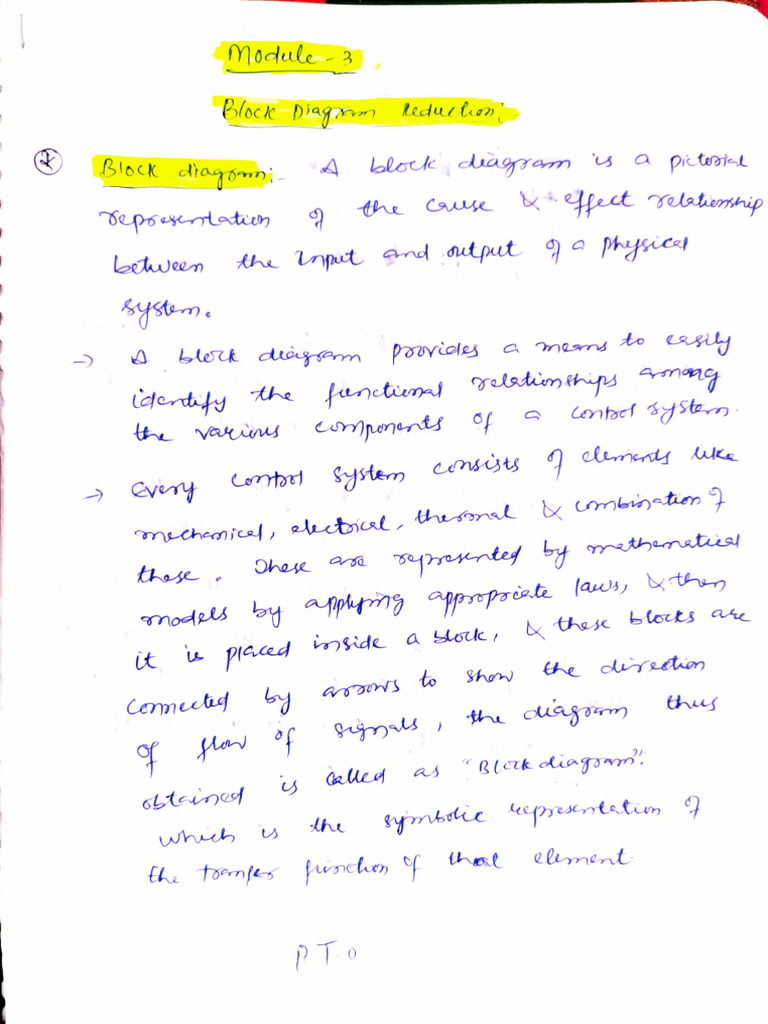 Module - 3
Block Diagram Reduction:
Block diagram:- A block diagram is a pictorial
representation of the cause & effect relationship
between the Input and output of a physical
system.
→ A block diagram provides a means to easily
identify the functional relationships among
the various components of a control system.
→ Every control system consists of elements like
mechanical, electrical, thermal & combination of
these. These are represented by mathematical
models by applying appropriate laws, & then
it is placed inside a block, & these blocks are
connected by arrows to show the direction
of flow of signals, the diagram thus
obtained is called as "Block diagram".
which is the symbolic representation of
the transfer function of that element
P T. O